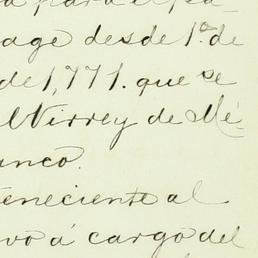 para el pa-
age desde 1º. de
de 1,771. que se
l Virrey de Mé-
anco.
teneciente al
vo á cargo del